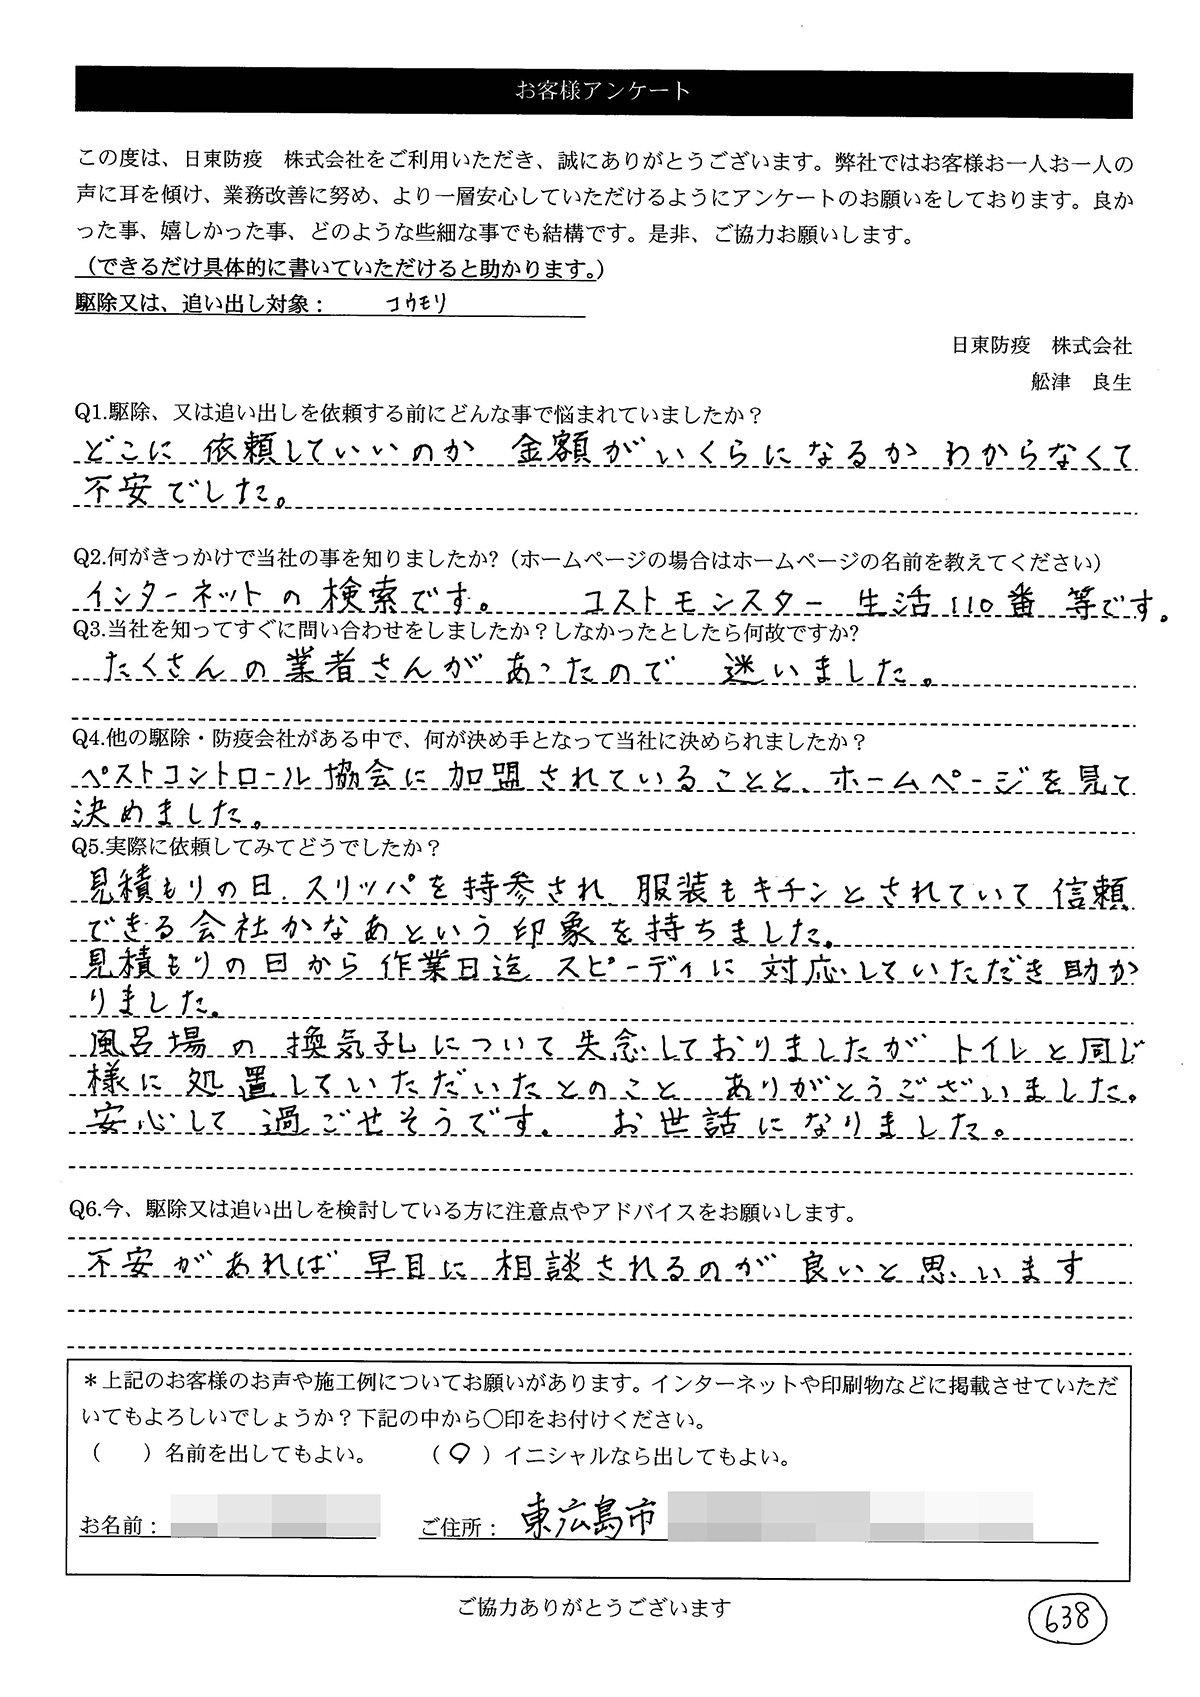 お客様アンケート
この度は、日東防疫　株式会社をご利用いただき、誠にありがとうございます。弊社ではお客様お一人お一人の
声に耳を傾け、業務改善に努め、より一層安心していただけるようにアンケートのお願いをしております。良か
った事、嬉しかった事、どのような些細な事でも結構です。是非、ご協力お願いします。
（できるだけ具体的に書いていただけると助かります。）
駆除又は、追い出し対象：　コウモリ
日東防疫　株式会社
舩津　良生
Q1.駆除、又は追い出しを依頼する前にどんな事で悩まれていましたか？
どこに 依頼していいのか 金額がいくらになるか わからなくて
不安でした。
Q2.何がきっかけで当社の事を知りましたか?（ホームページの場合はホームページの名前を教えてください）
インターネットの検索です。　コストモンスター 生活110番 等です。
Q3.当社を知ってすぐに問い合わせをしましたか？しなかったとしたら何故ですか?
たくさんの業者さんがあったので 迷いました。
Q4.他の駆除・防疫会社がある中で、何が決め手となって当社に決められましたか？
ペストコントロール協会に加盟されていることと、ホームページを見て
決めました。
Q5.実際に依頼してみてどうでしたか？
見積もりの日、スリッパを持参され、服装もキチンとされていて信頼
できる会社かなあという印象を持ちました。
見積もりの日から作業日迄 スピーディに対応していただき助か
りました。
風呂場の換気孔について失念しておりましたが トイレと同じ
様に処置していただいたとのこと ありがとうございました。
安心して過ごせそうです。 お世話になりました。
Q6.今、駆除又は追い出しを検討している方に注意点やアドバイスをお願いします。
不安があれば 早目に相談されるのが良いと思います
＊上記のお客様のお声や施工例についてお願いがあります。インターネットや印刷物などに掲載させていただ
いてもよろしいでしょうか？下記の中から〇印をお付けください。
（　　）名前を出してもよい。　（ ○ ）イニシャルなら出してもよい。
お名前：　ご住所：　東広島市
ご協力ありがとうございます
638